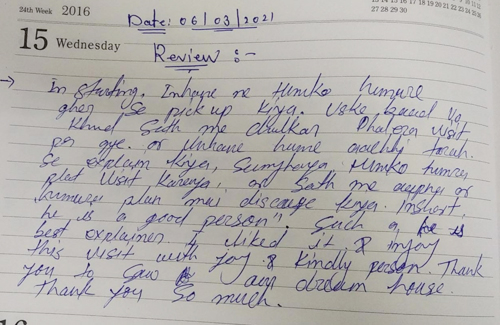 24th Week 2016
27 28 29 30
15 Wednesday
Date: 06/03/2021
Review :-
→ In starting. Inhone ne Humko humare
gher se pick up Kiya. Uske baad Ya
Khud Sath me chalkar Phalera visit
par gye. or Unhone hume achhi tarah
se explain kiya, Sumjhaya. Humko humra
plat Visit Karaya, or Sath me aapne or
humara plan mai discuse kiya. Inshort,
he is a good person". Such a he is
best explainer. I liked it & injoy
this visit with joy & Kindly person. Thank
you to Gaw our dream house.
Thank you So much.